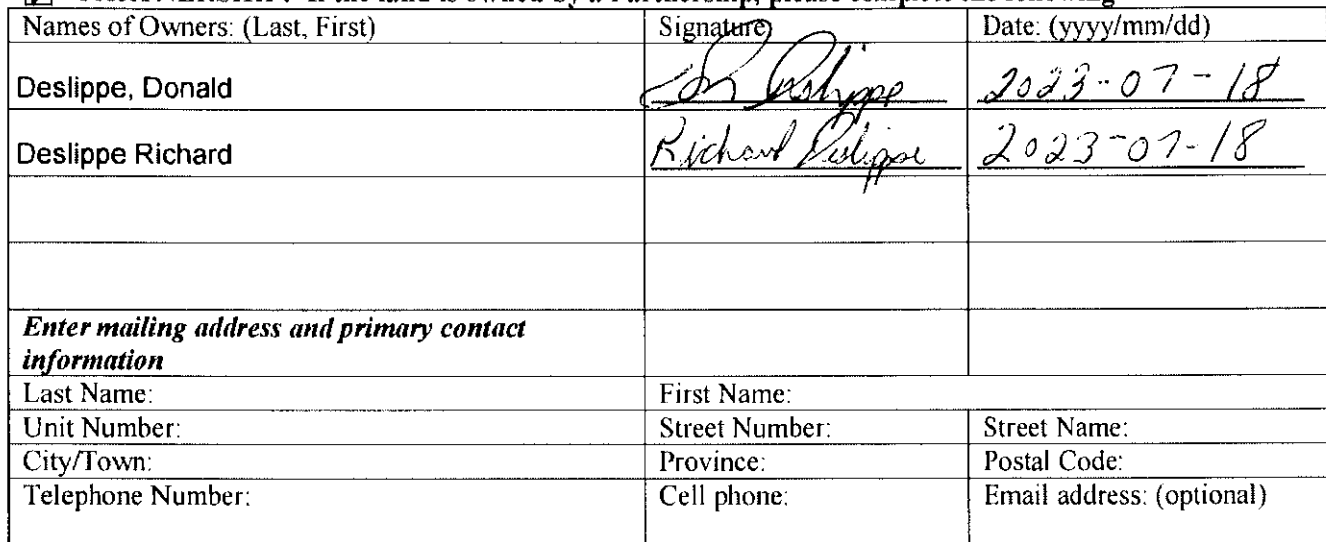 PARTNERSHIP: If the land is owned by a Partnership, please complete the following
Names of Owners: (Last, First) Signature Date: (yyyy/mm/dd)
Deslippe, Donald Don Deslippe 2023-07-18
Deslippe Richard Richard Deslippe 2023-07-18
Enter mailing address and primary contact
information
Last Name: First Name:
Unit Number: Street Number: Street Name:
City/Town: Province: Postal Code:
Telephone Number: Cell phone: Email address: (optional)